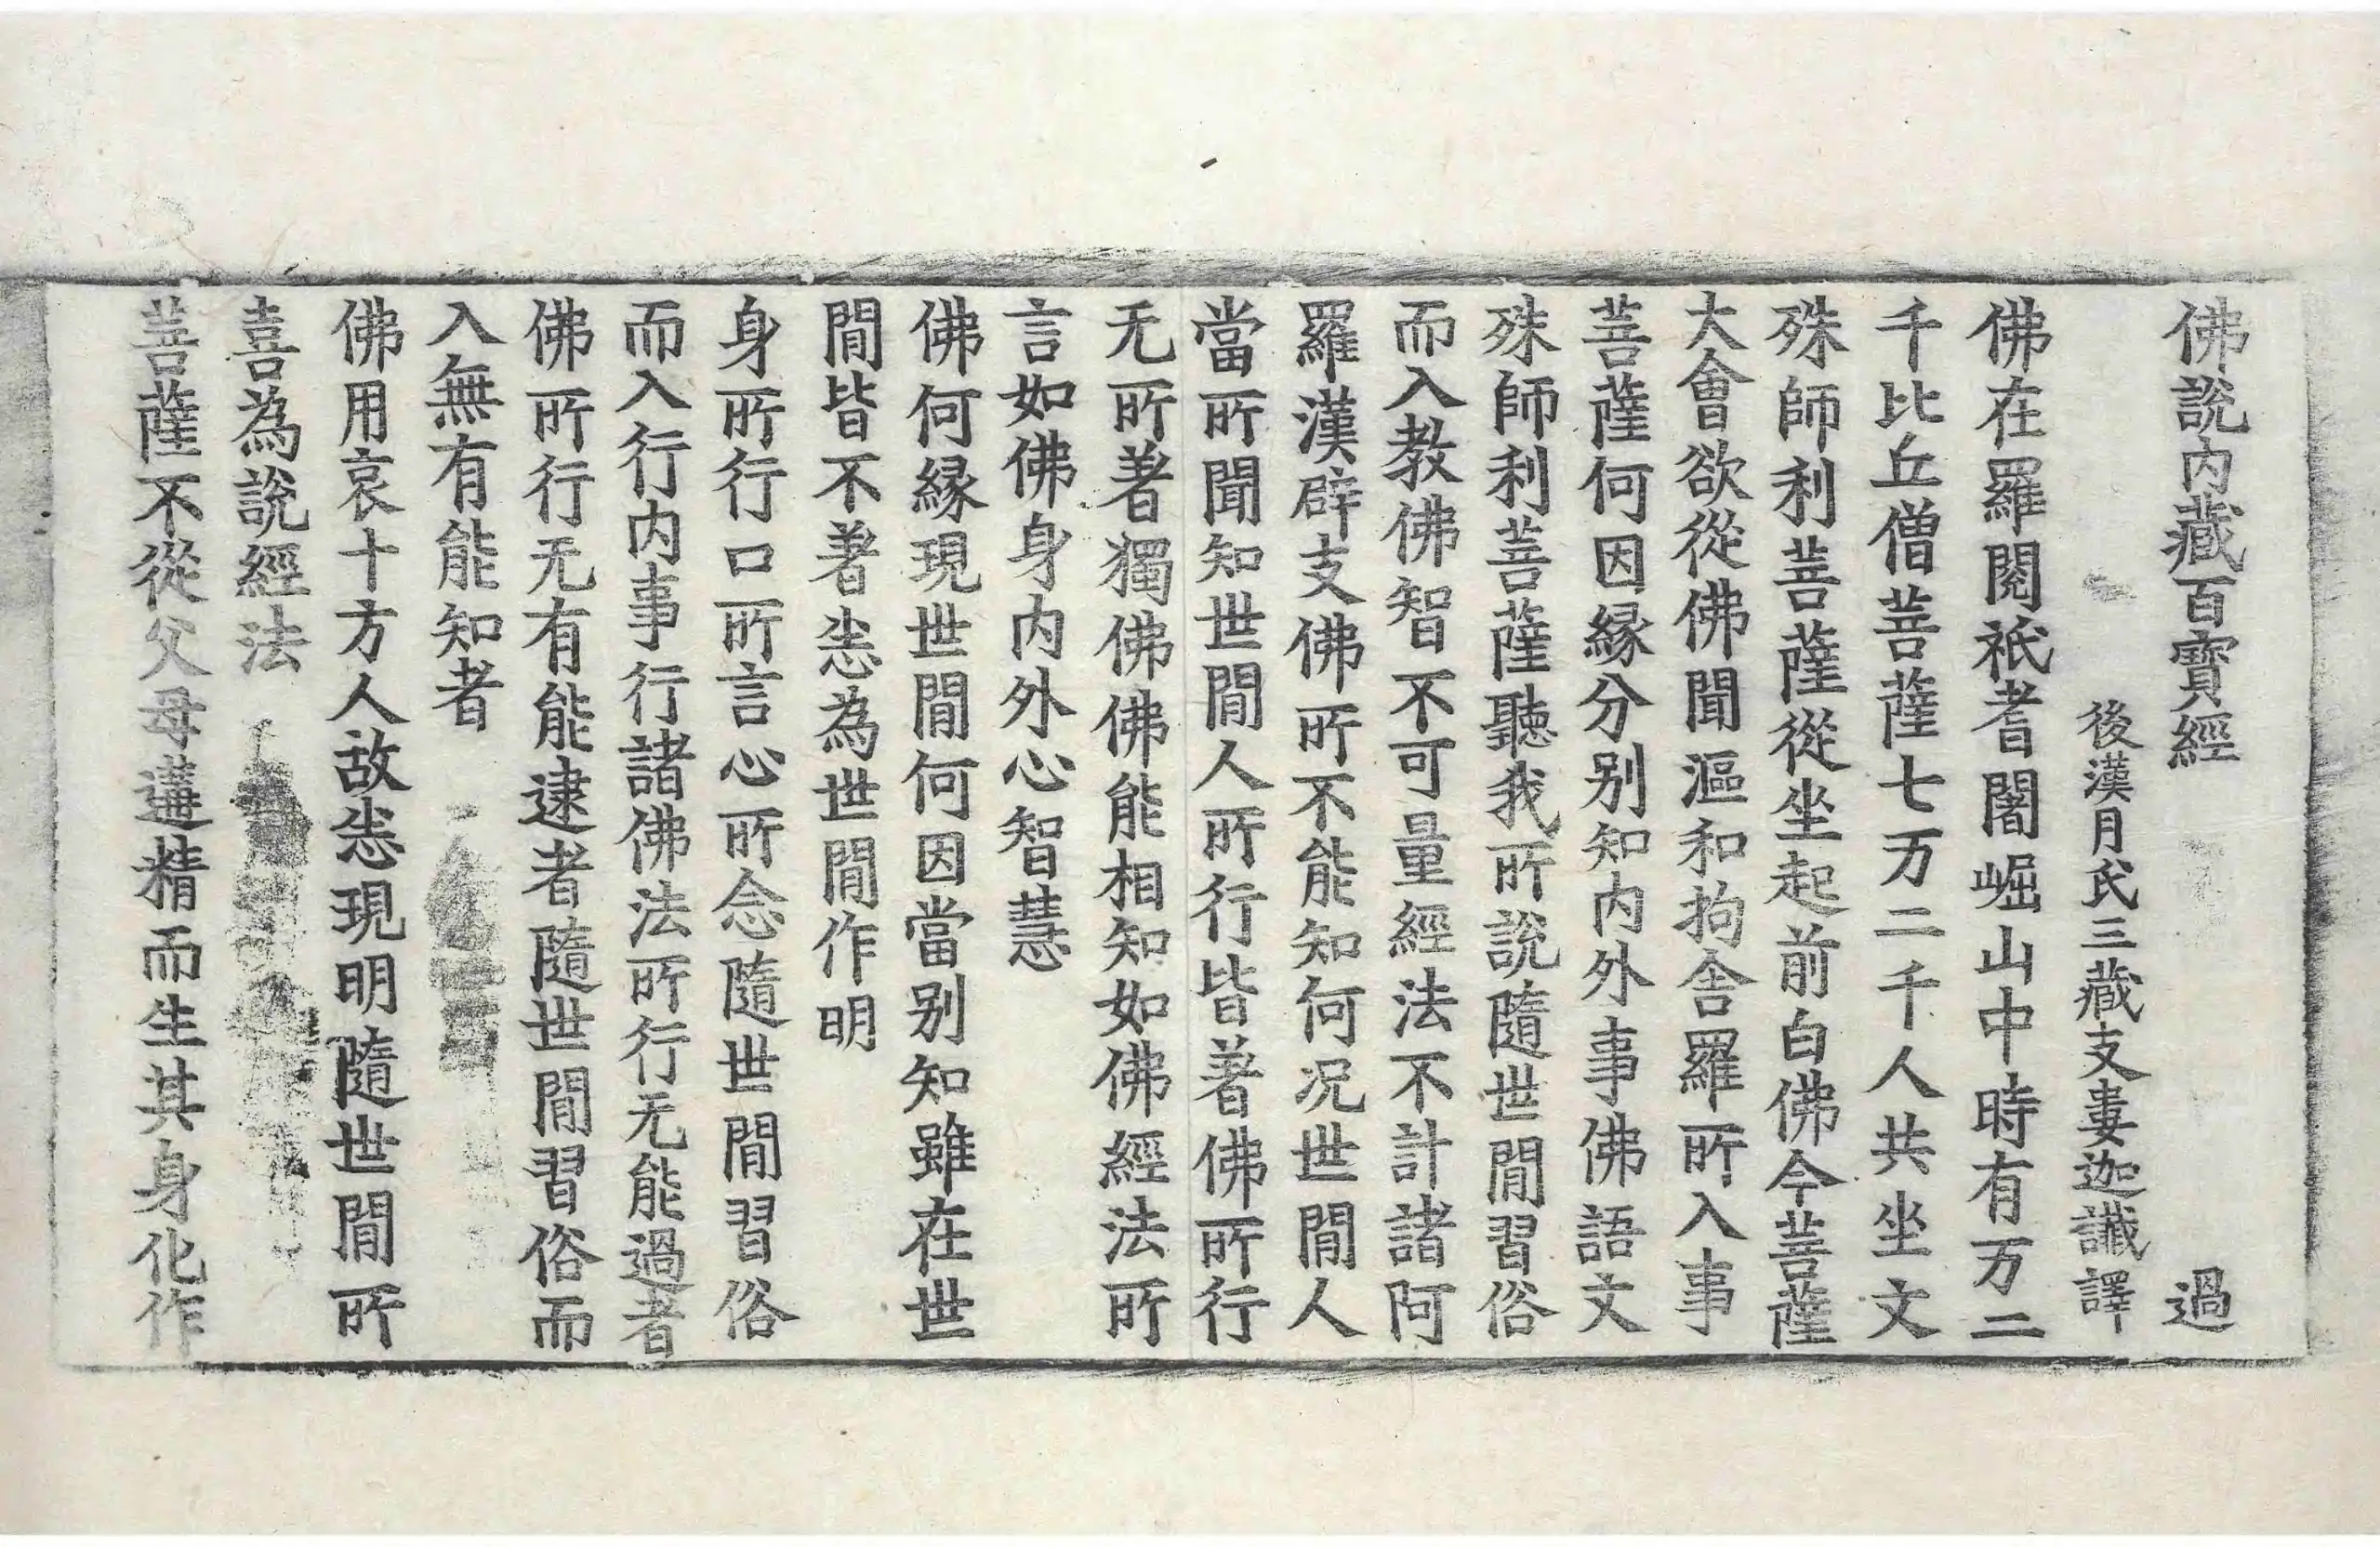 佛說內藏百寶經　過
後漢月氏三藏支婁迦讖譯
佛在羅閱祇耆闍崛山中時有万二
千比丘僧菩薩七万二千人共坐文
殊師利菩薩從坐起前白佛今菩薩
大會欲從佛聞漚和拘舍羅所入事
菩薩何因緣分別知內外事佛語文
殊師利菩薩聽我所說隨世間習俗
而入教佛智不可量經法不計諸阿
羅漢辟支佛所不能知何況世間人
當所聞知世間人所行皆著佛所行
无所著獨佛佛能相知如佛經法所
言如佛身內外心智慧
佛何緣現世間何因當別知雖在世
間皆不著恙為世間作明
身所行口所言心所念隨世間習俗
而入行內事行諸佛法所行无能過者
佛所行无有能逮者隨世間習俗而
入無有能知者
佛用哀十方人故恙現明隨世間所
喜為說經法
菩薩不從父母遘精而生其身化作